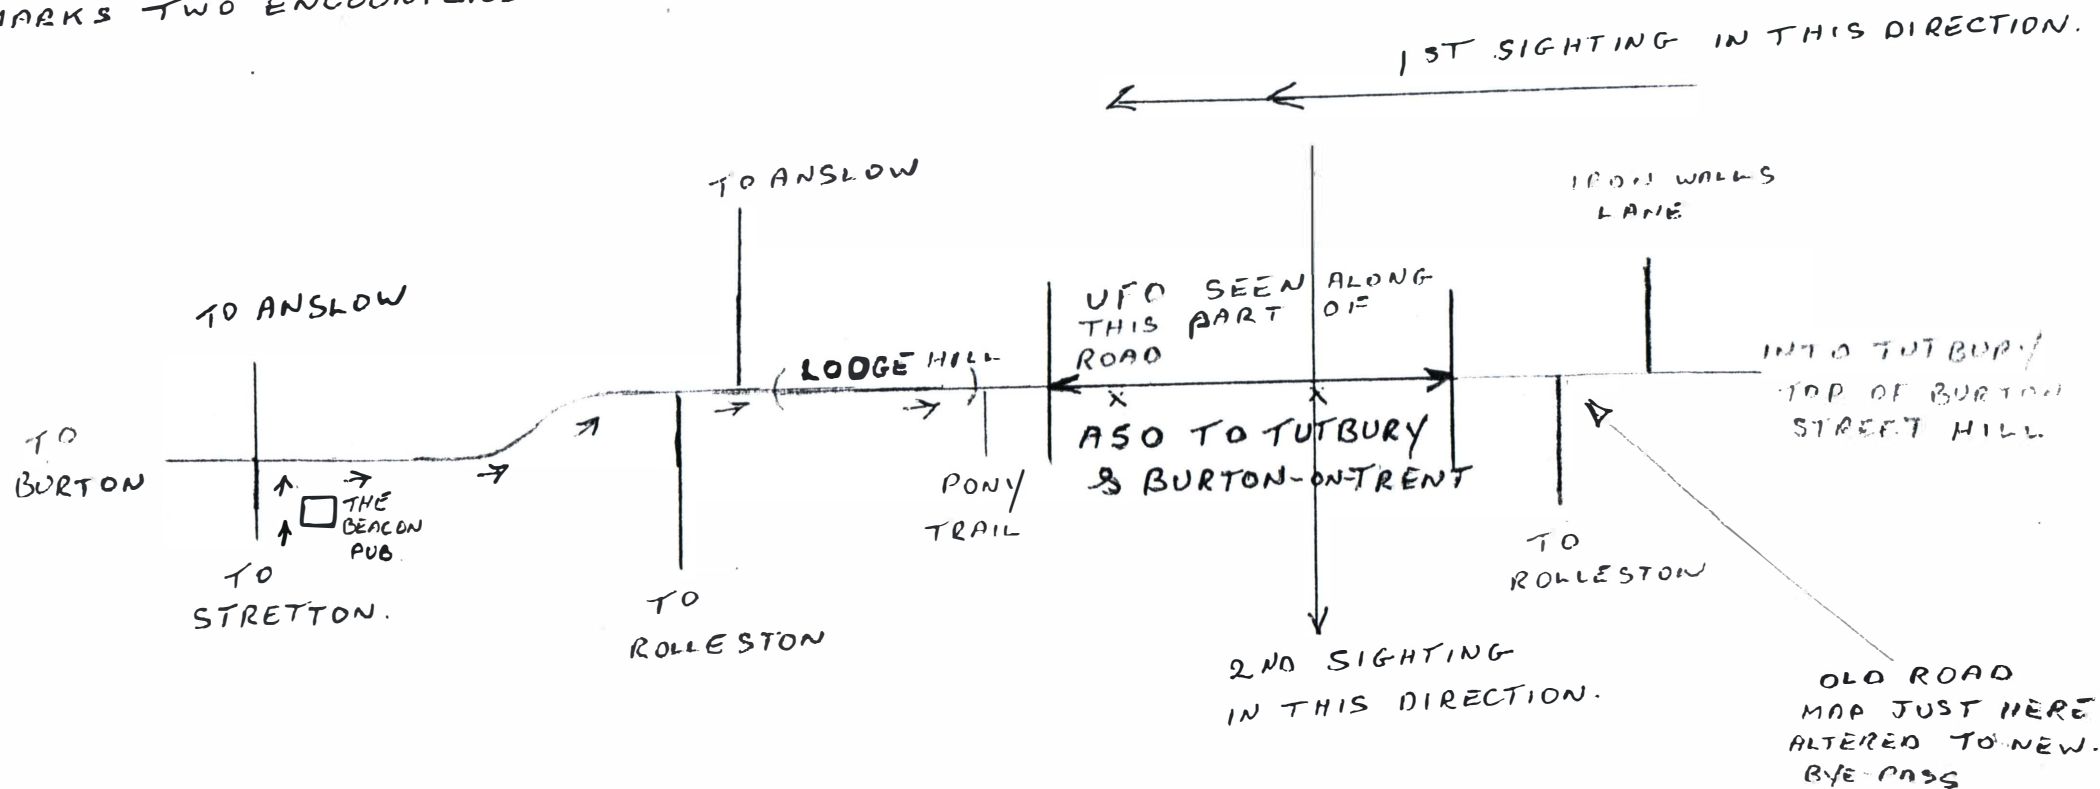 MARKS TWO
1ST SIGHTING IN THIS DIRECTION.
TO ANSLOW
IRON WALLS
LANE
TO ANSLOW
UFO SEEN ALONG
THIS PART OF
ROAD
(LODGE HILL)
INTO TUTBURY
TOP OF BURTON
STREET HILL
X X
TO
BURTON
THE
BEACON
PUB
A50 TO TUTBURY
& BURTON-ON-TRENT
PONY
TRAIL
TO
STRETTON.
TO
ROLLESTON
TO
ROLLESTON
2ND SIGHTING
IN THIS DIRECTION.
OLD ROAD
MAP JUST HERE
ALTERED TO NEW.
BYE-PASS